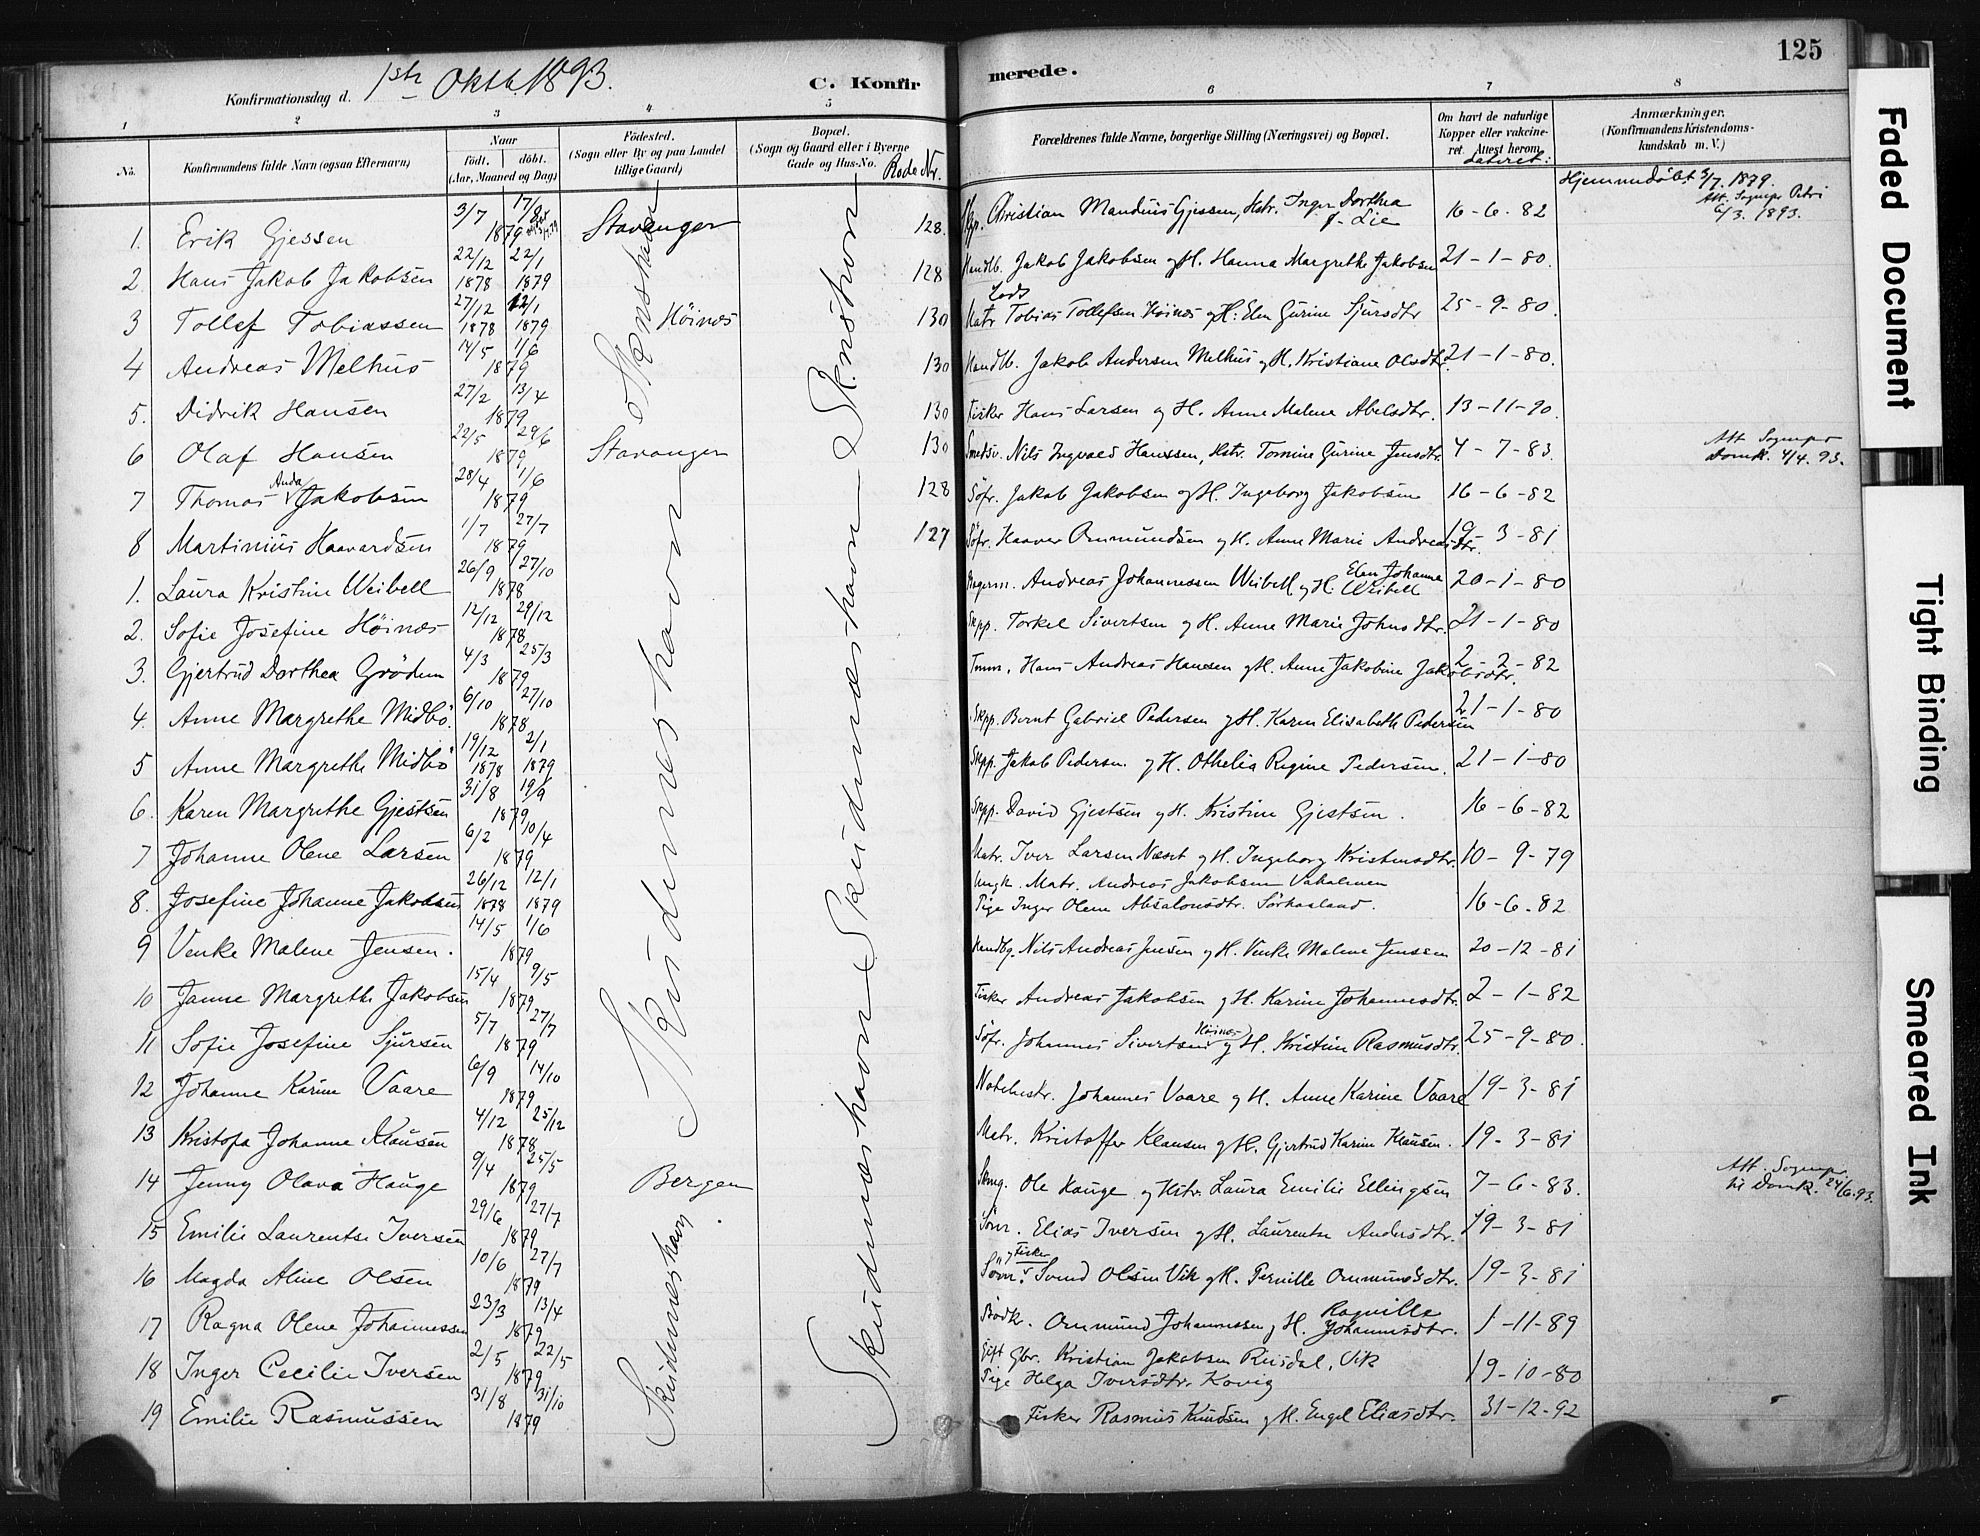 125
Konfirmationsdag d. 1ste Oktb. 1893.
C. Konfirmerede.
1 2 3 4 5 6 7 8
No.
Konfirmandens fulde Navn (ogsaa Efternavn)
Naar
födt. döbt.
(Aar, Maaned og Dag)
Födested.
(Sogn eller By og paa Landet
tillige Gaard)
Bopæl.
(Sogn og Gaard eller i Byerne
Gade og Hus-No. Rode Nr.
Forældrenes fulde Navne, borgerlige Stilling (Næringsvei) og Bopæl.
Om havt de naturlige
Kopper eller vakcineret. Attest herom
dateret:
Anmærkninger.
(Konfirmandens Kristendomskundskab m. V.)
1. Erik Gjessen 3/7 1879 Stavanger 128. Christian Mandius Gjessen, Hstr. Inger Dorthea f. Lie 16-6-82 Hjemmedöbt 3/7. 1879. Att. Sognepr Petri 6/3. 1893.
2. Hans Jakob Jakobsen 22/12 1878 22/1 1879 128 Handlb. Jakob Jakobsen og H. Hanna Margrethe Jakobsen 21-1-80.
3 Tollef Tobiassen 27/12 1878 12/1 1879 Höines 130 Lods Matr Tobias Tollefsen Höines og H: Elen Gurine Sjursdtr 25-9-80.
4 Andreas Melhus 14/5 1/6 1879 130 Handlb. Jakob Andersen Melhus og H. Kristiane Olsdtr. 21-1-80.
5. Didrik Hansen 27/2 13/4 1879 130 Fisker Hans Larsen og H. Anne Malene Abelsdtr. 13-11-90.
6 Olaf Hansen 22/5 29/6 1879 Stavanger 130 Smedsv. Nils Ingvald Hanssen, Hstr. Tomine Gurine Jensdtr. 4-7-83. Att Sognepr Domk. 4/4. 93.
7 Thomas Anda Jakobsen 28/4 1/6 1879 128 Söfr. Jakob Jakobsen og H. Ingeborg Jakobsen 16-6-82
8 Martinius Haavardsen 1/7 27/7 1879 127 Söfr. Haaver Ommundsen og H. Anne Marie Andreasdtr. 19-3-81
1. Laura Kristine Weibell 26/9 27/10 1878 Andreas Johannessen Weibell og H. Elen Johanne Weibell 20-1-80
2. Sofie Josefine Höines 12/12 29/12 1878 Skpp. Torkel Sivertsen og H. Anne Marie Johnsdtr. 21-1-80
3. Gjertrud Dorthea Grödem 4/3 25/3 1879 Tmm. Hans Andreas Hansen og H. Anne Jakobine Jakobsdtr. 2-2-82
4. Anne Margrethe Midbö. 6/10 27/10 1878 Skpp. Bernt Gabriel Pedersen og H. Karen Elisabeth Pedersen 21-1-80
5 Anne Margrethe Midbö 19/12 1878 2/1 1879 Skpp. Jakob Pedersen og H. Othelia Regine Pedersen. 21-1-80
6. Karen Margrethe Gjestsen 31/8 19/9 1879 Skpp. David Gjestsen og H. Kristine Gjestsen. 16-6-82
7 Johanne Olene Larsen 6/2 10/4 1879 Matr. Iver Larsen Næset og H. Ingeborg Kristensdtr. 10-9-79
8. Josefine Johanne Jakobsen 26/12 1878 12/1 1879 Ungk. Matr. Andreas Jakobsen Vaholmen
Pige Inger Olene Absalonsdtr. Sörhaaland. 16-6-82
9 Venke Malene Jensen. 14/5 1/6 1879 Nils Andreas Jensen og H. Venke Malene Jenssen 20-12-81
10 Janne Margrethe Jakobsen 15/4 9/5 1879 Fisker Andreas Jakobsen og H. Karine Johannesdtr. 2-1-82
11 Sofie Josefine Sjursen 5/7 27/7 1879 Söfr. Johannes Sivertsen Höines og H. Kristine Rasmusdtr. 25-9-80.
12 Johanne Karine Vaare 6/9 14/10 1879 Johannes Vaare og H. Anne Karine Vaare 19-3-81
13 Kristofa Johanne Klausen 4/12 25/12 1878 Matr. Kristoffer Klausen og H. Gjertrud Karine Klausen. 19-3-81
14 Jenny Olava Hauge 9/4 25/5 1879 Bergen Ole Hauge og Hstr. Laura Emilie Ellingsen 7-6-83. Att. Sognepr. til Domk. 24/6. 93.
15 Emilie Laurentse Iversen 29/6 27/7 1879 Elias Iversen og H. Laurentse Andersdtr. 19-3-81
16 Magda Aline Olsen 10/6 27/7 1879 og Fisker Svend Olsen Vik og H. Pernille Ommundsdtr. 19-3-81
17 Ragna Olene Johannessen 23/3 13/4 1879 Bödk. Ommund Johannessen og H. Ragnille Johannesdtr. 1-11-89
18 Inger Cecilie Iversen 2/5 22/5 1879 Gift Gbr. Kristian Jakobsen Risdal, Vik
Pige Helga Iversdtr. Kovig 19-10-80
19 Emilie Rasmussen 31/8 31/10 1879 Fisker Rasmus Knudsen og H. Engel Eliasdtr. 31-12-92
Skudneshavn
Skudneshavn
Skudneshavn
Skudneshavn
Faded Document
Tight Binding
Smeared Ink